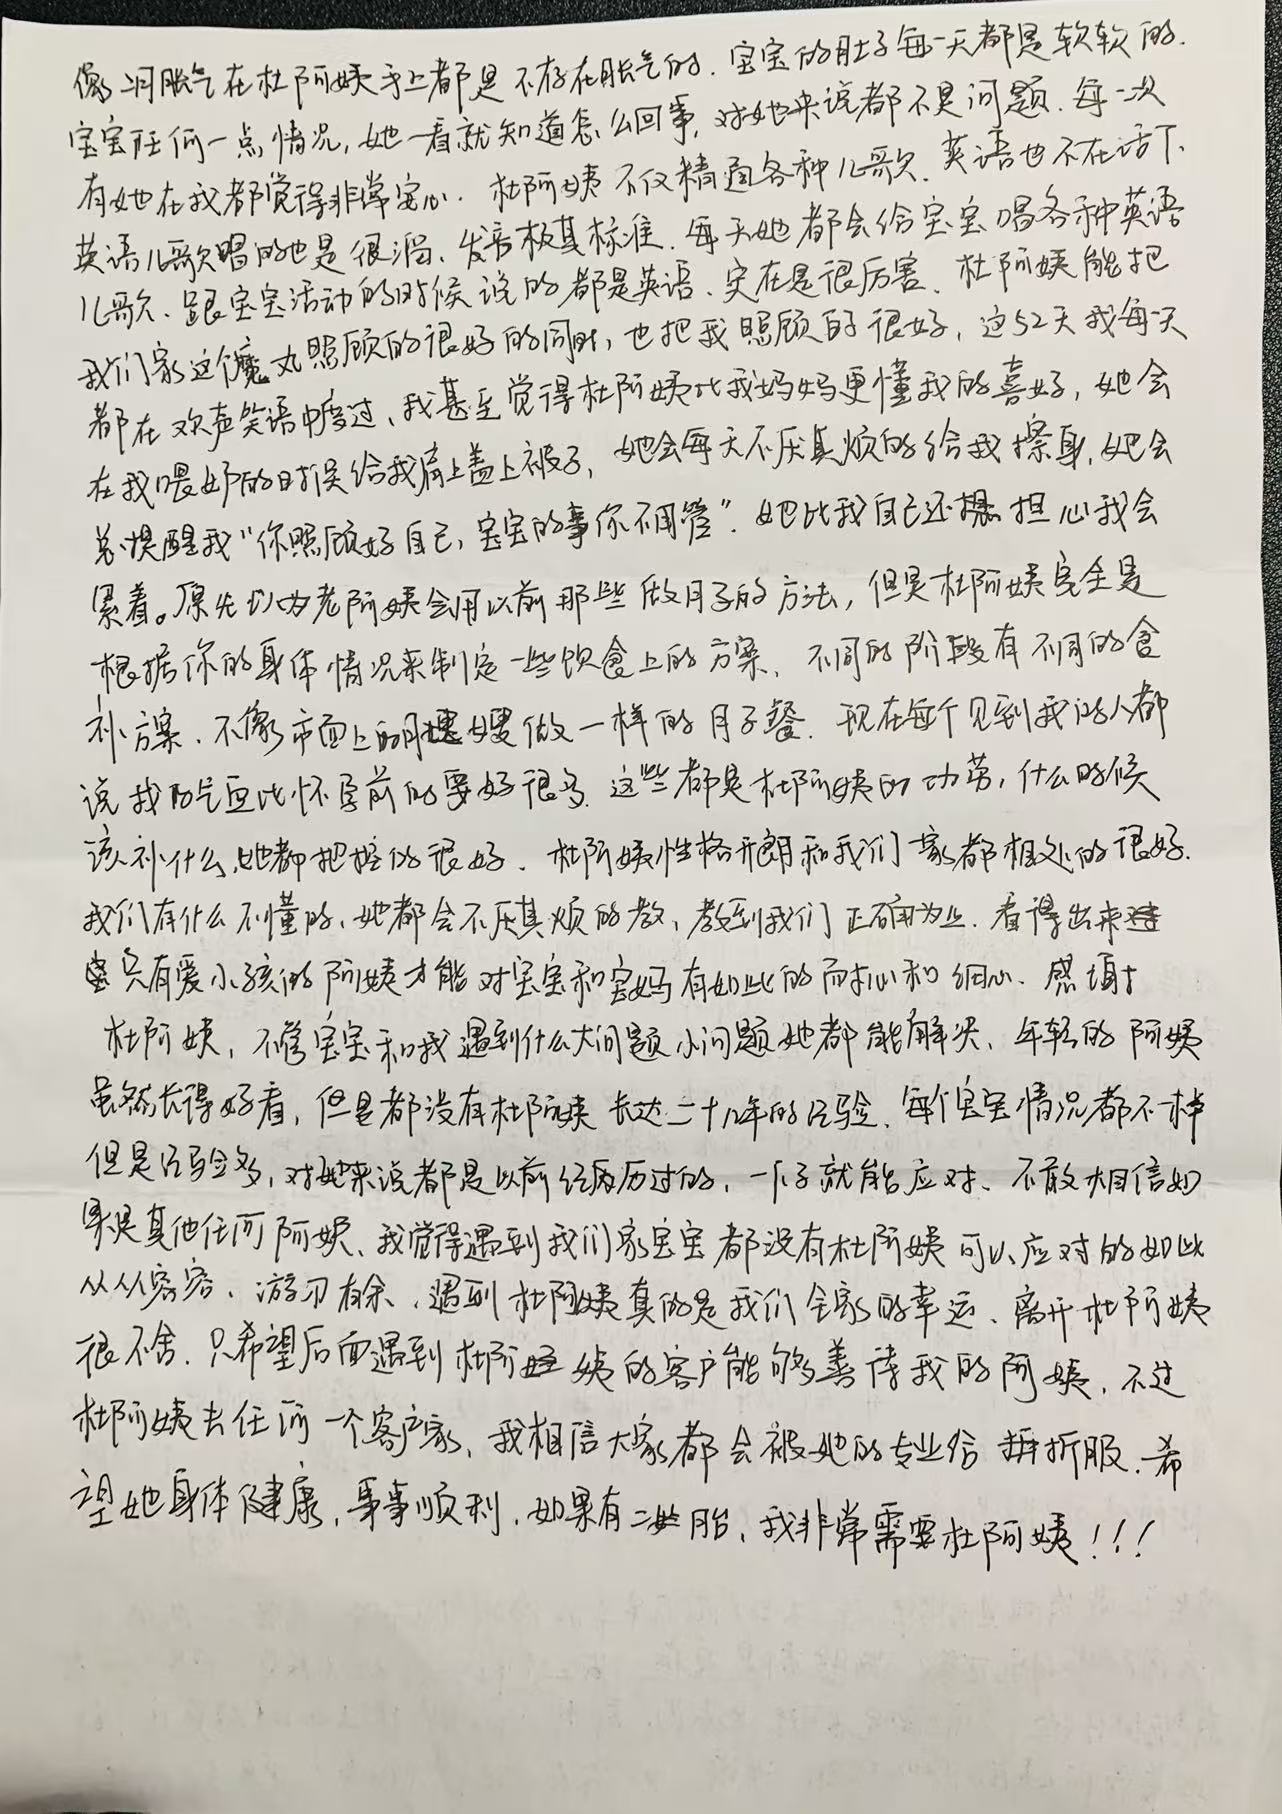 像胀气在杜阿姨手上都是不存在胀气的.宝宝的肚子每一天都是软软的.
宝宝任何一点情况,她一看就知道怎么回事,对她来说都不是问题.每一次
有她在我都觉得非常安心.杜阿姨不仅精通各种儿歌.英语也不在话下、
英语儿歌唱的也是很溜、发音极其标准.每天她都会给宝宝唱各种英语
儿歌、跟宝宝活动的时候说的都是英语、实在是很厉害、杜阿姨能把
我们家这个魔丸照顾的很好的同时,也把我照顾的很好,这52天我每一天
都在欢声笑语中度过、我甚至觉得杜阿姨比我妈妈更懂我的喜好,她会
在我喂奶的时候给我肩上盖上被子,她会每天不厌其烦的给我擦身,她会
总提醒我“你照顾好自己,宝宝的事你不用管”.她比我自己还担心我会
累着。原先以为老阿姨会用以前那些做月子的方法,但是杜阿姨完全是
根据你的身体情况来制定一些饮食上的方案、不同的阶段有不同的食
补方案、不像市面上的月嫂做一样的月子餐.现在每个见到我的人都
说我的气血比怀孕前的要好很多.这些都是杜阿姨的功劳,什么时候
该补什么,她都把控的很好.杜阿姨性格开朗和我们一家都相处的很好.
我们有什么不懂的、她都会不厌其烦的教、教到我们正确为止.看得出来
只有爱小孩的阿姨才能对宝宝和宝妈有如此的耐心和细心.感谢
杜阿姨,不管宝宝和我遇到什么大问题小问题她都能解决、年轻的阿姨
虽然长得好看,但是都没有杜阿姨长达二十几年的经验.每个宝宝情况都不一样
但是经验多,对她来说都是以前经历过的,一下子就能应对、不敢相信如
果是其他任何阿姨、我觉得遇到我们家宝宝都没有杜阿姨可以应对的如此
从从容容、游刃有余、遇到杜阿姨真的是我们全家的幸运、离开杜阿姨
很不舍.只希望后面遇到杜阿姨的客户能够善待我的阿姨,不过
杜阿姨去任何一个客户家,我相信大家都会被她的专业给折服.希
望她身体健康,事事顺利.如果有二胎,我非常需要杜阿姨!!!